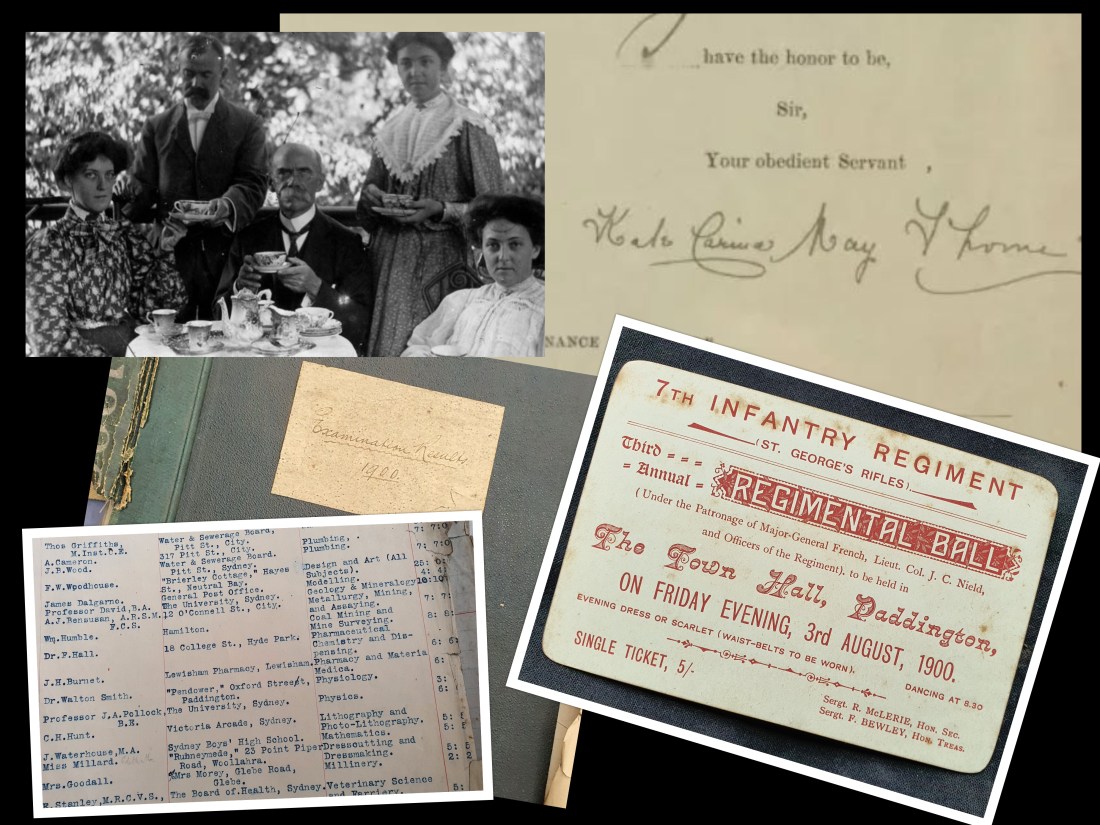 have the honor to be,
Sir,
Your obedient Servant ,
Kate Carina May Thorne
NANCE
Examination Results
1900.
Thos Griffiths,
M.Inst.C.E.
A.Cameron.
J.B.Wood.
F.W.Woodhouse.
James Dalgarno.
Professor David,B.A.
A.J.Bensusan, A.R.S.M.
F.C.S.
Wm.Humble.
Dr.F.Hall.
J.H.Burnet.
Dr.Walton Smith.
Professor J.A.Pollock,
B.E.
C.H.Hunt.
J.Waterhouse,M.A.
Miss Millard.
Mrs.Goodall.
E.Stanley,M.R.C.V.S.,
Water & Sewerage Board,
Pitt St., City.
317 Pitt St., City.
Water & Sewerage Board.
Pitt St., Sydney.
"Brierley Cottage," Hayes
St., Neutral Bay.
General Post Office.
The University, Sydney.
12 O'Connell St., City.
Hamilton.
18 College St., Hyde Park.
Lewisham Pharmacy, Lewisham.
"Pendower," Oxford Street,
Paddington.
The University, Sydney.
Victoria Arcade, Sydney.
Sydney Boys' High School.
"Rubneymede," 23 Point Piper
Road, Woollahra.
Mrs Morey, Glebe Road,
Glebe.
The Board of Health, Sydney.
Plumbing,
Plumbing.
Design and Art (All
Subjects).
Modelling.
Geology & Mineralogy
Metallurgy, Mining,
and Assaying.
Coal Mining and
Mine Surveying.
Pharmaceutical
Chemistry and Dis-
pensing.
Pharmacy and Materia
Medica.
Physiology.
Physics.
Lithography and
Photo-Lithography.
Mathematics.
Dresscutting and
Dressmaking.
Millinery.
Veterinary Science
and Farriery.
7TH INFANTRY REGIMENT
(ST. GEORGE'S RIFLES).
Third
Annual
REGIMENTAL BALL
(Under the Patronage of Major-General French, Lieut. Col. J. C. Nield,
and Officers of the Regiment), to be held in
The Town Hall, Paddington,
ON FRIDAY EVENING, 3rd AUGUST, 1900.
EVENING DRESS OR SCARLET (WAIST-BELTS TO BE WORN).
DANCING AT 8.30
SINGLE TICKET, 5/-
Sergt. R. McLERIE, Hon. Sec.
Sergt. F. BEWLEY, Hon. Treas.